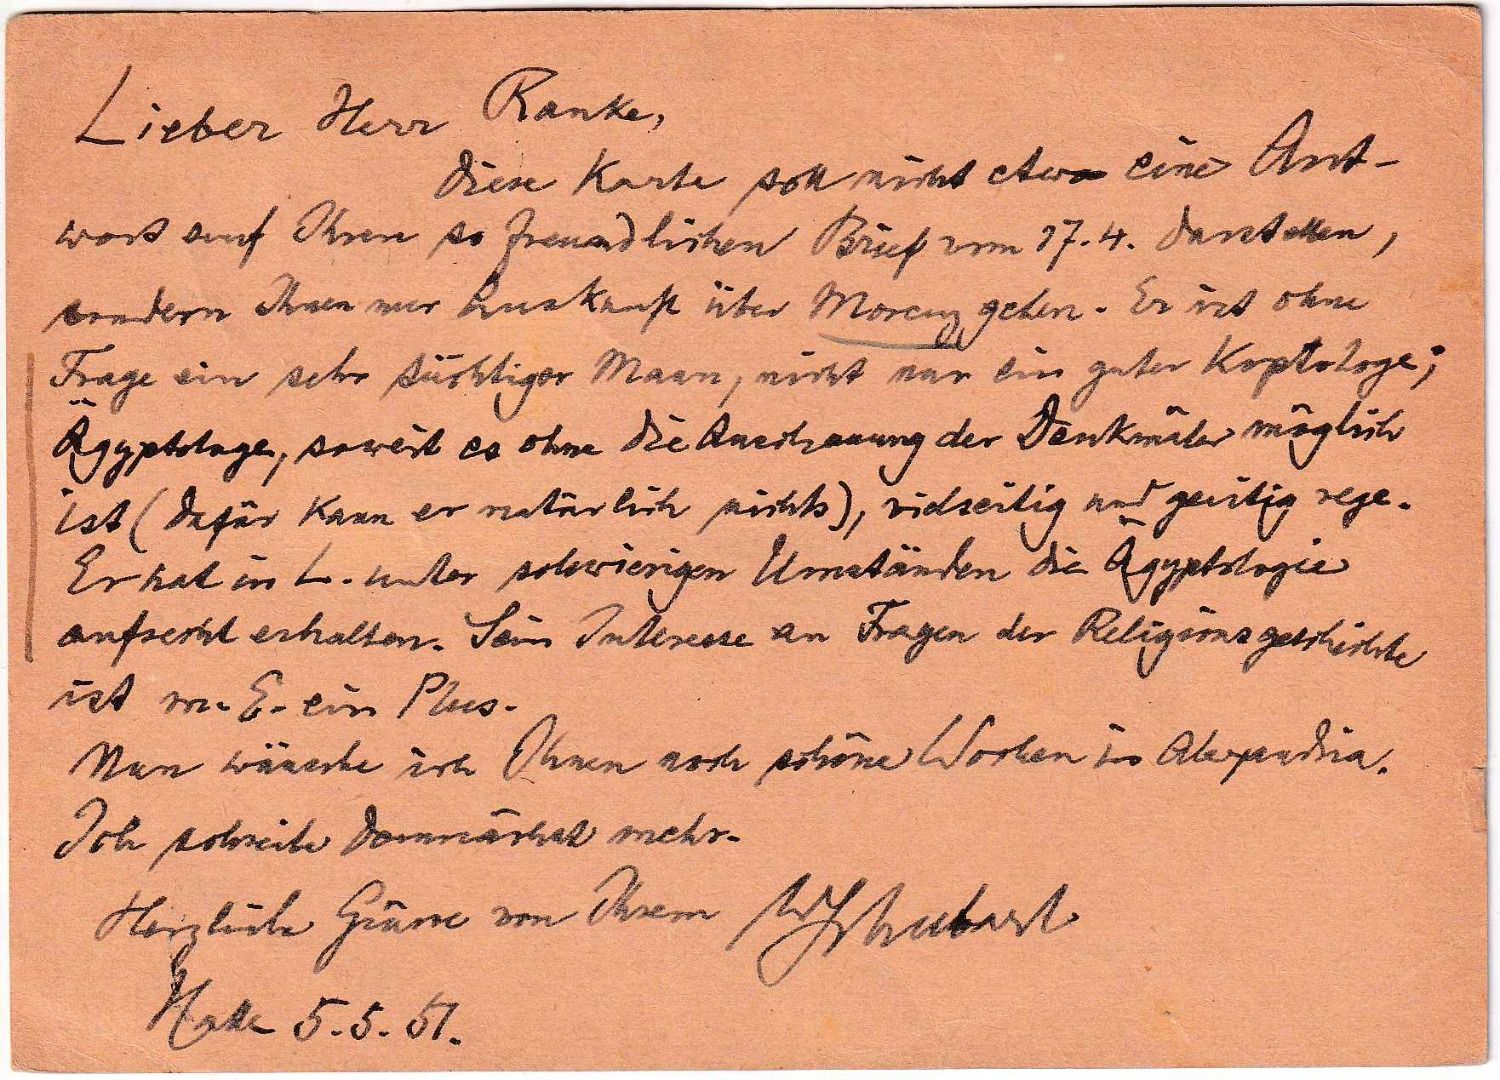 Lieber Herr Ranke,
diese Karte soll nicht etwa eine Ant-
wort auf Ihren so freundlichen Brief vom 17.4. darstellen,
sondern Ihnen nur Auskunft über Morenz geben. Er ist ohne
Frage ein sehr tüchtiger Mann, nicht nur ein guter Koptologe;
Ägyptologe, soweit es ohne die Anschauung der Denkmäler möglich
ist (dafür kann er natürlich nichts), vielseitig und geistig rege.
Er hat in L. unter schwierigen Umständen die Ägyptologie
aufrecht erhalten. Sein Interesse an Fragen der Religionsgeschichte
ist m. E. ein Plus.
Nun wünsche ich Ihnen noch schöne Wochen in Alexandria.
Ich schreibe demnächst mehr.
Herzliche Grüsse von Ihrem WSchubart
Halle 5.5.51.